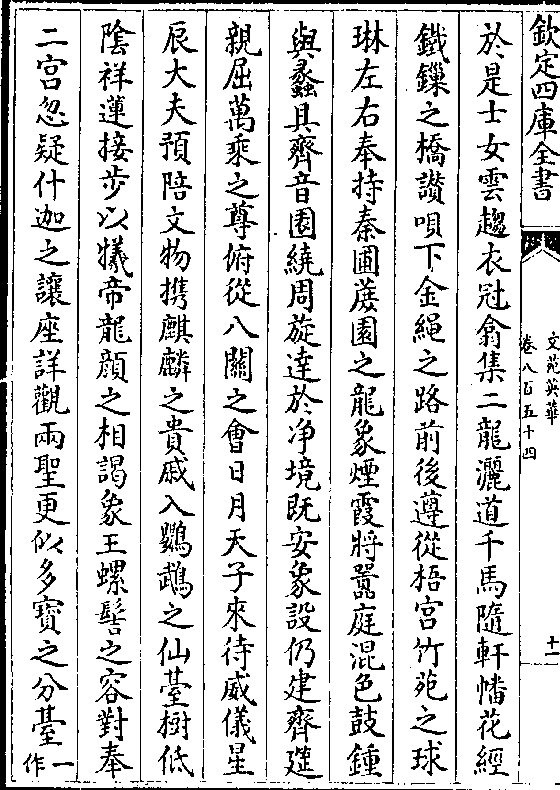 欽定四庫全書
文苑英華
卷八百五十四
十一
於是士女雲趨衣冠翕集二龍灑道千馬隨軒幡花經
鐵鏁之橋讃唄下金繩之路前後遵從梧宫竹苑之球
琳左右奉持秦圃蔗園之龍象煙霞將罽庭混色鼓鍾
與蠡具齊音圍繞周旋達於净境既安象設仍建齊筵
親屈萬乘之尊俯從八關之會日月天子來待威儀星
辰大夫預陪文物攜麒麟之貴戚入鸚鵡之仙臺樹低
隂祥蓮接步以犧帝龍顔之相謁象王螺髻之容對奉
二宫忽疑什迦之讓座詳觀兩聖更似多寳之分臺一作